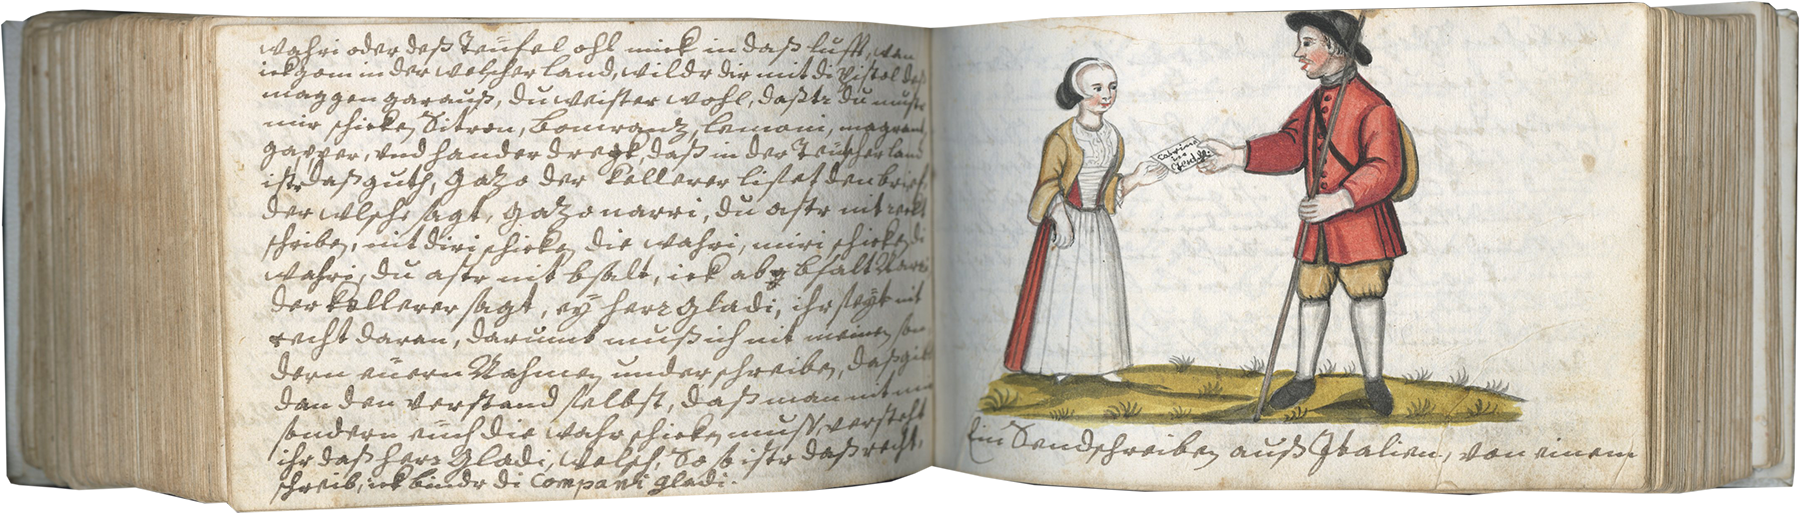 wahri oder deß Teufel ohl mick in daß lufft, wan
ick kom in der welscher land, wildr dir mit di Pistol deß
maggen garauß, du weister wohl, daßtr du mustr
mir schicken Sitron, bomrantz, lemoni, magrant,
gapper, und hander dreck, daß in der Teutscher land
istr daß guth, Gazo der Kellerer liset den brief,
der wlsche sagt, gazo narri, du astr nit reckt
schriben, nit diri schicken die wahri, miri schicken di
wahri, du astr nit bsalt, ick ab bsalt Narri
der Kellerer sagt, eÿ herr Gladi, ihr seÿt nit
recht daran, darumb muß ich nit meinen son
dern eüern Nahmen underschreiben, daß gibt
dan den verstand selbst, daß man nit mir
sondern eüch die wahr schicken muß, versteht
ihr daß herr Gladi, welsch, So so istr daß recht,
schreib, ick bindr di Compani gladi.
Catrina
Ein Sendschreiben auß Italien, von einem